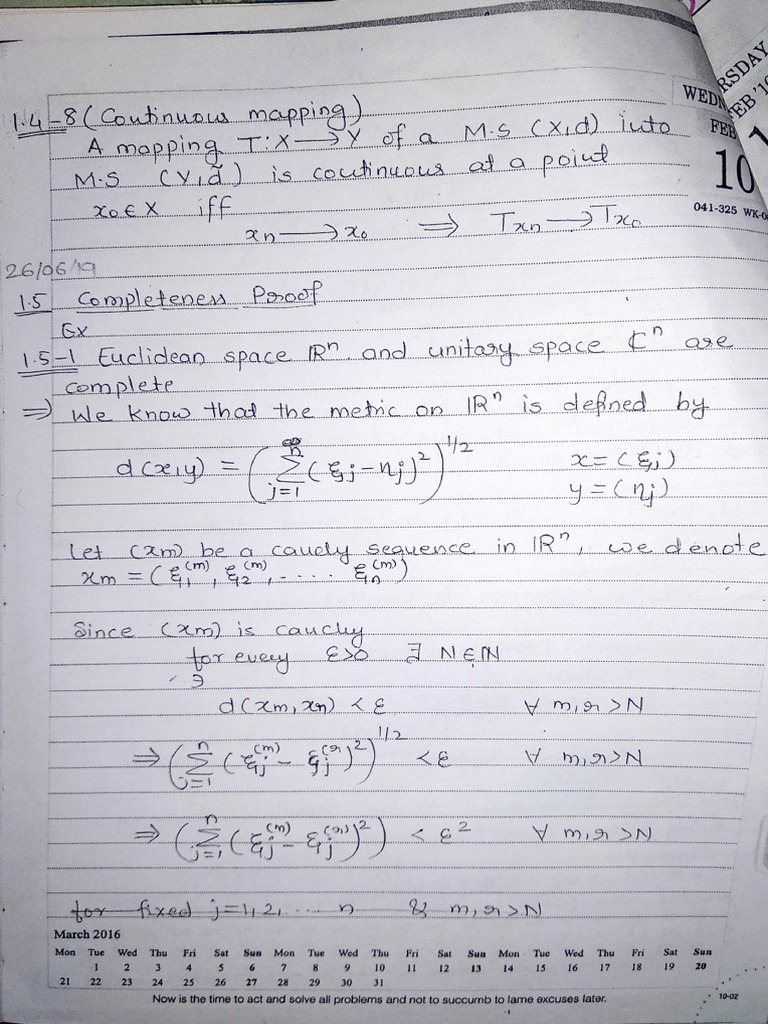 RSDAY
WEDN
FEB'1
FEB
10
041-325 WK-0
1.4-8 (Continuous mapping)
A mapping T:X→Y of a M.S (X,d) into
M.S (Y,d̃) is continuous at a point
x₀∈X iff
xn → x₀ ⇒ Txn → Tx₀
26/06/19
1.5 Completeness Proof
Ex
1.5-1 Euclidean space ℝⁿ and unitary space ℂⁿ are
complete
⇒ We know that the metric on ℝⁿ is defined by
d(x,y) = (Σ_{j=1}^{n} (ξj - ηj)²)^{1/2} x=(ξj)
y=(ηj)
Let (xm) be a cauchy sequence in ℝⁿ, we denote
xm = (ξ₁^(m), ξ₂^(m), ..... ξn^(m))
Since (xm) is cauchy
for every ε>0 ∃ N∈ℕ
∋
d(xm, xr) < ε ∀ m,r>N
⇒ (Σ_{j=1}^{n} (ξj^(m) - ξj^(r))²)^{1/2} < ε ∀ m,r>N
⇒ (Σ_{j=1}^{n} (ξj^(m) - ξj^(r))²) < ε² ∀ m,r >N
for fixed j=1,2,... n & m,r>N
March 2016
Mon Tue Wed Thu Fri Sat Sun Mon Tue Wed Thu Fri Sat Sun Mon Tue Wed Thu Fri Sat Sun
1 2 3 4 5 6 7 8 9 10 11 12 13 14 15 16 17 18 19 20
21 22 23 24 25 26 27 28 29 30 31
Now is the time to act and solve all problems and not to succumb to lame excuses later.
10-02